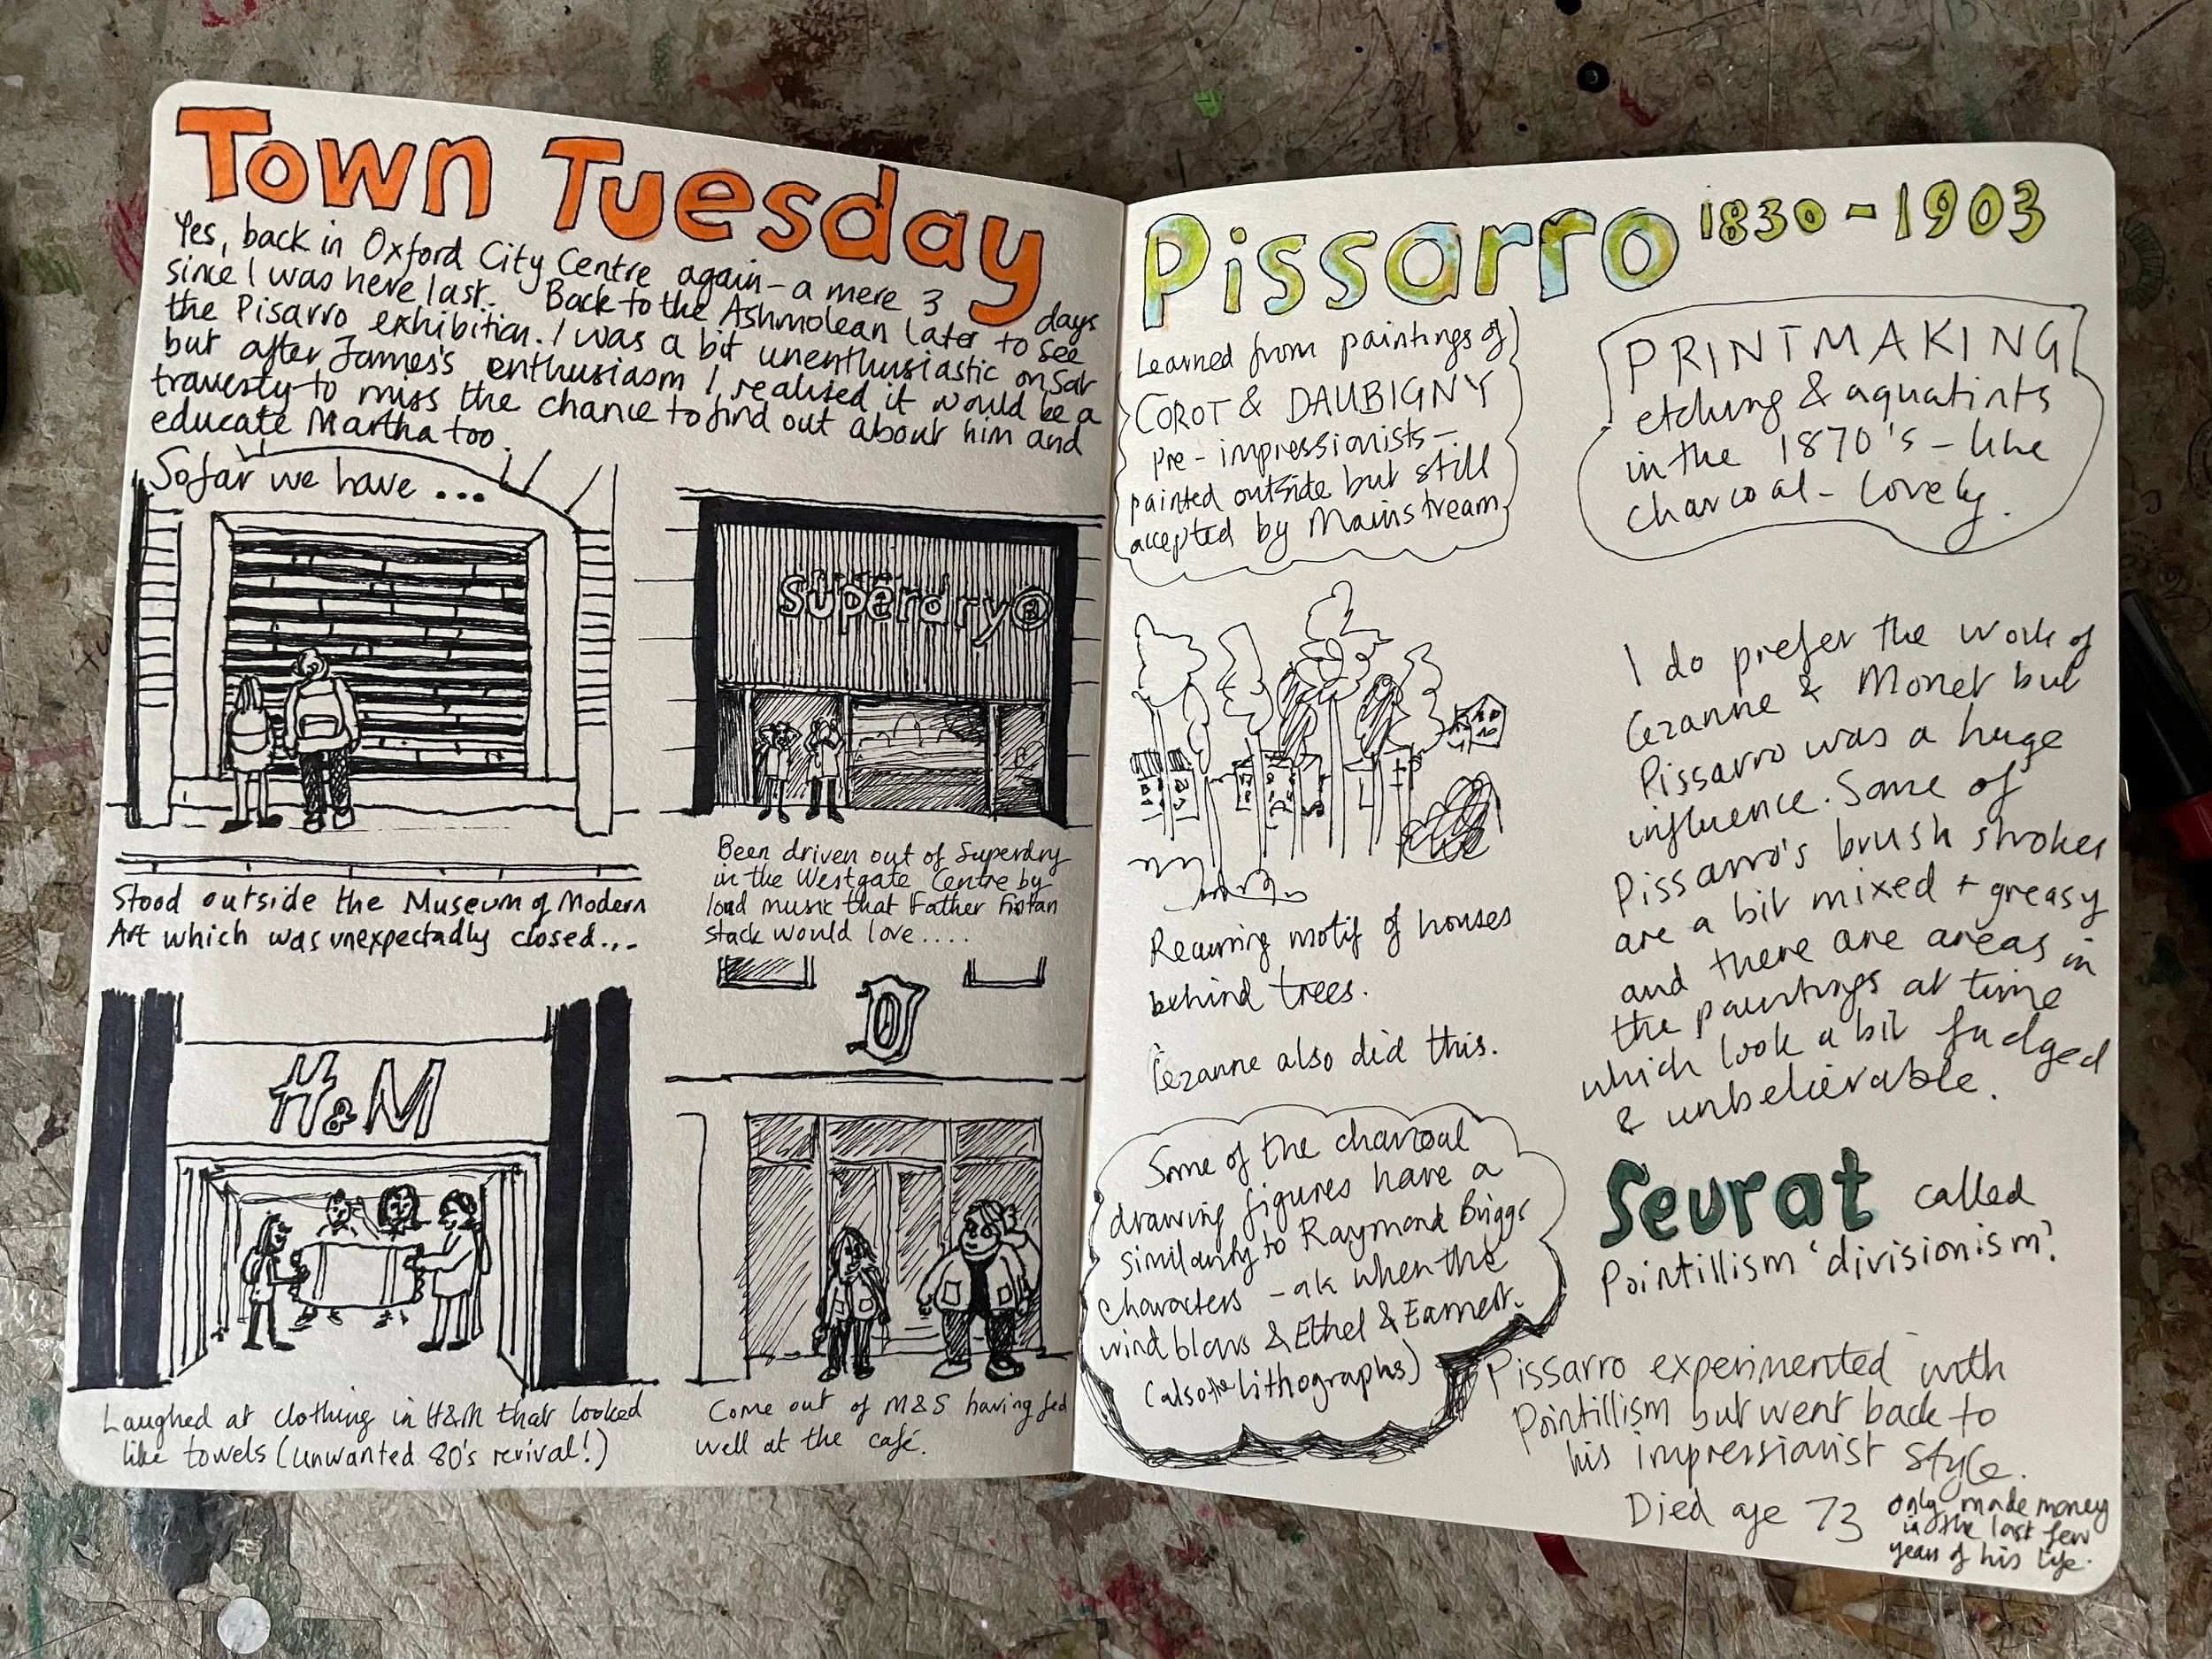 Town Tuesday
Yes, back in Oxford City Centre again - a mere 3 days
since I was here last. Back to the Ashmolean later to see
the Pisarro exhibition. I was a bit unenthusiastic on Sat
but after James's enthusiasm I realised it would be a
travesty to miss the chance to find out about him and
educate Martha too.
So far we have ...
Stood outside the Museum of Modern
Art which was unexpectadly closed...
superdry®
Been driven out of Superdry
in the Westgate Centre by
loud music that Father
stack would love....
H&M
Laughed at clothing in H&M that looked
like towels (unwanted 80's revival!)
Come out of M&S having fed
well at the café.
Pissarro 1830-1903
Learned from paintings of
COROT & DAUBIGNY
pre-impressionists -
painted outside but still
accepted by Mainstream
PRINTMAKING
etching & aquatints
in the 1870's - like
charcoal - lovely.
Recurring motif of houses
behind trees.
Cezanne also did this.
Some of the charcoal
drawing figures have a
similarity to Raymond Briggs
characters - ak when the
wind blows & Ethel & Earnest.
(also the lithographs)
I do prefer the work of
Cezanne & Monet but
Pissarro was a huge
influence. Some of
Pissarro's brush strokes
are a bit mixed + greasy
and there are areas in
the paintings at time
which look a bit fudged
& unbelievable.
Seurat called
Pointillism 'divisionism'.
Pissarro experimented with
Pointillism but went back to
his impressionist style.
Died age 73
only made money
in the last few
years of his life.